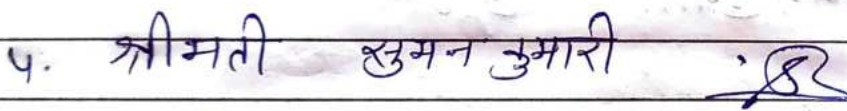 ५. श्रीमती सुमन कुमारी